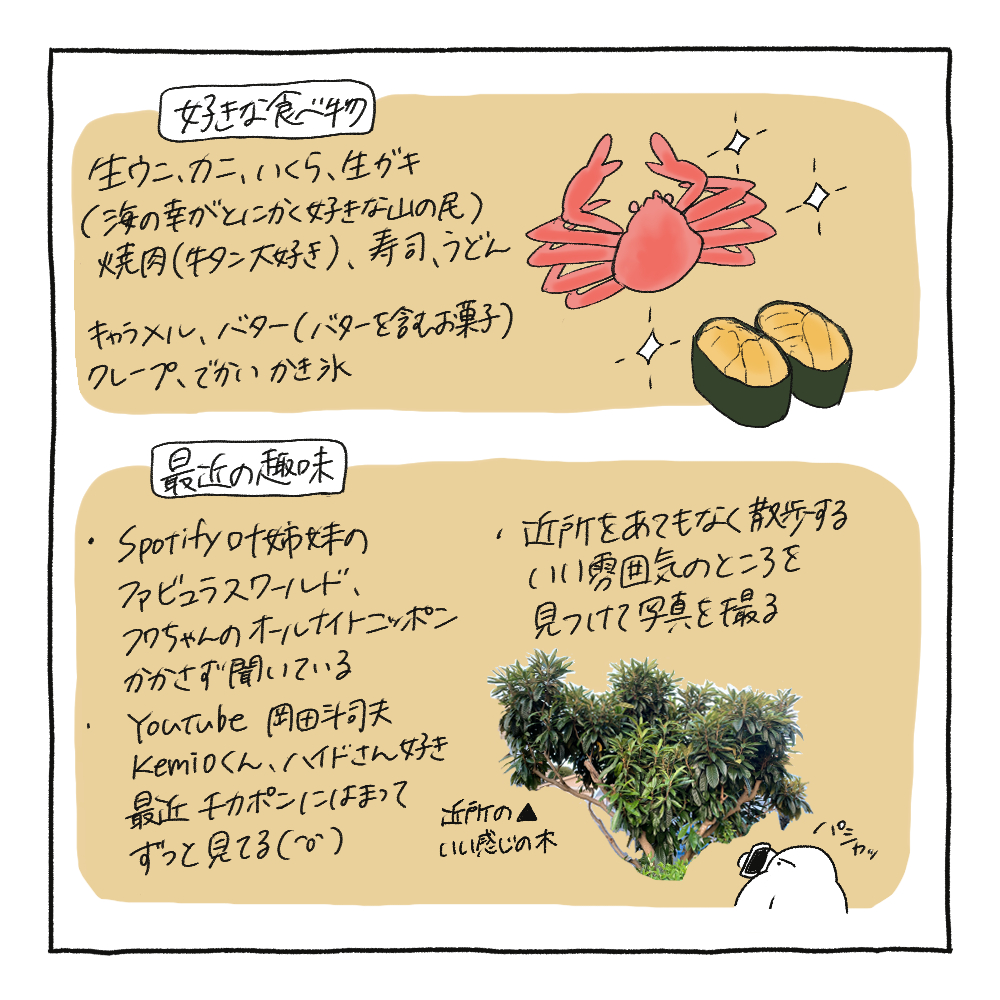 好きな食べ物
生ウニ、カニ、いくら、生ガキ
(海の幸がとにかく好きな山の民)
焼肉(牛タン大好き)、寿司、うどん
キャラメル、バター(バターを含むお菓子)
クレープ、でかいかき氷
最近の趣味
・Spotify叶姉妹の
ファビュラスワールド、
フワちゃんのオールナイトニッポン
かかさず聞いている
・YouTube 岡田斗司夫
Kemioくん、ハイドさん好き
最近チカポンにはまって
ずっと見てる(^o^)
・近所をあてもなく散歩する
いい雰囲気のところを
見つけて写真を撮る
近所の▲
いい感じの木
パシャッ